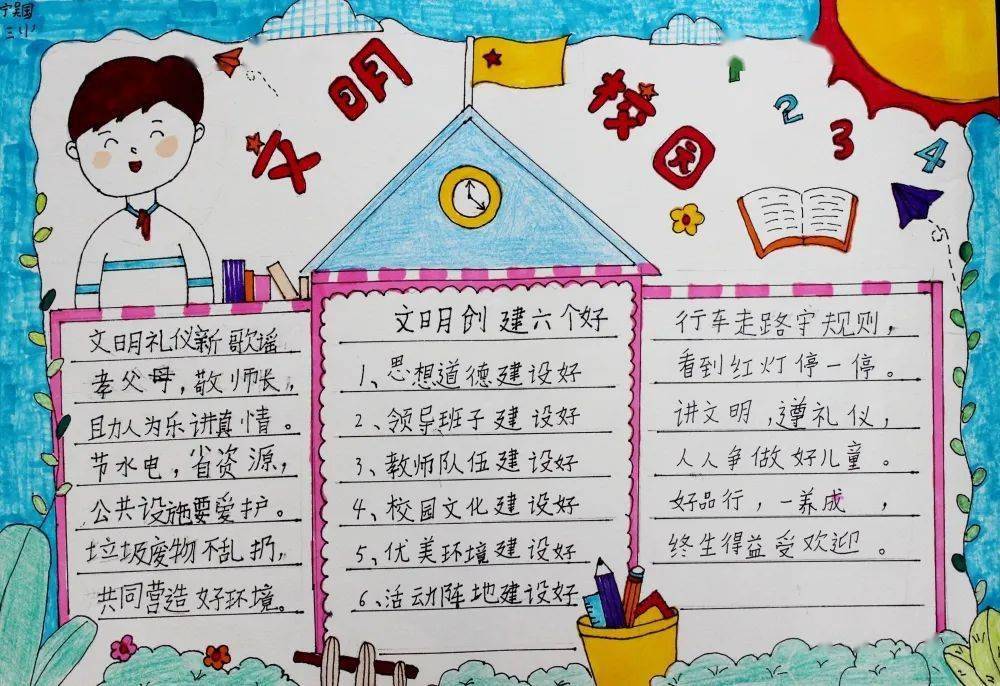 宁国
三小
文明
校园
1
2
3
4
文明礼仪新歌瑶
孝父母，敬师长，
助人为乐讲真情。
节水电，省资源，
公共设施要爱护。
垃圾废物不乱扔，
共同营造好环境。
文明创建六个好
1、思想道德建设好
2、领导班子建设好
3、教师队伍建设好
4、校园文化建设好
5、优美环境建设好
6、活动阵地建设好
行车走路守规则，
看到红灯停一停。
讲文明，遵礼仪，
人人争做好儿童。
好品行，一养成，
终生得益受欢迎。